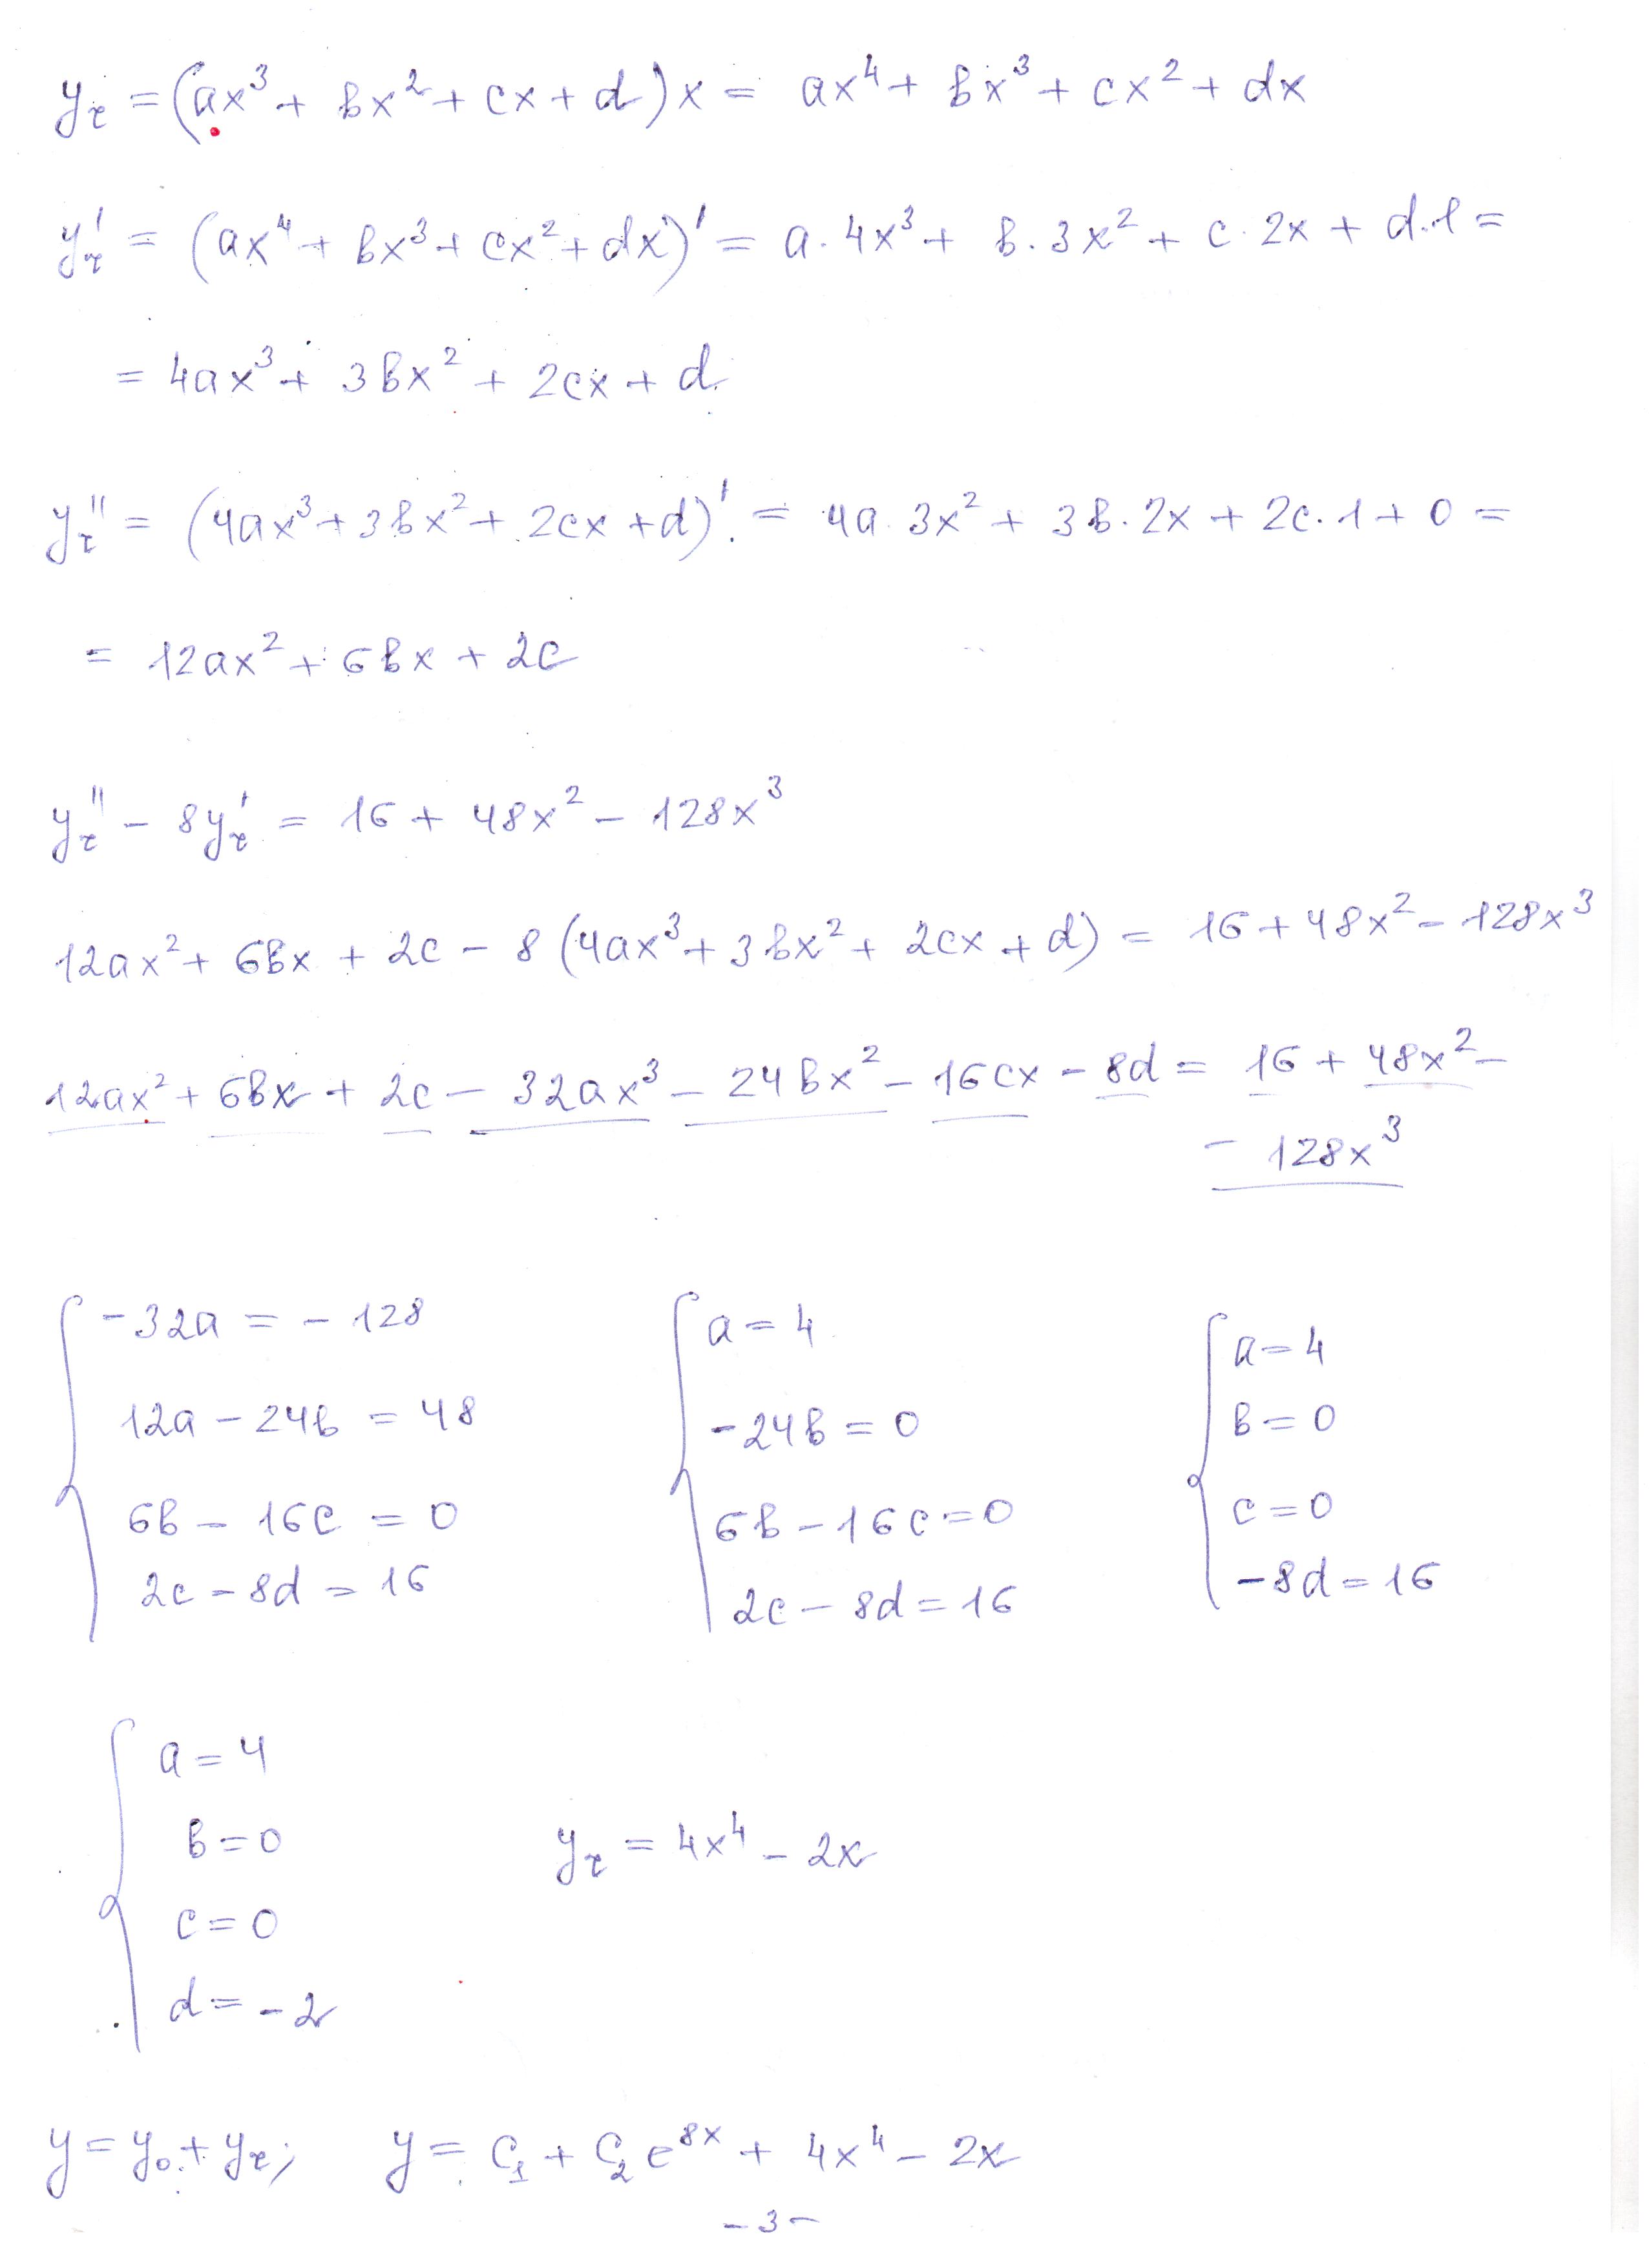 yᵣ = (ax³ + bx² + cx + d)x = ax⁴ + bx³ + cx² + dx
yᵣ' = (ax⁴ + bx³ + cx² + dx)' = a·4x³ + b·3x² + c·2x + d·1 =
= 4ax³ + 3bx² + 2cx + d
yᵣ'' = (4ax³ + 3bx² + 2cx + d)' = 4a·3x² + 3b·2x + 2c·1 + 0 =
= 12ax² + 6bx + 2c
yᵣ'' - 8yᵣ' = 16 + 48x² - 128x³
12ax² + 6bx + 2c - 8(4ax³ + 3bx² + 2cx + d) = 16 + 48x² - 128x³
12ax² + 6bx + 2c - 32ax³ - 24bx² - 16cx - 8d = 16 + 48x² -
- 128x³
-32a = -128
12a - 24b = 48
6b - 16c = 0
2c - 8d = 16
a = 4
-24b = 0
6b - 16c = 0
2c - 8d = 16
a = 4
b = 0
c = 0
-8d = 16
a = 4
b = 0
c = 0
d = -2
yᵣ = 4x⁴ - 2x
y = y₀ + yᵣ; y = C₁ + C₂e⁸ˣ + 4x⁴ - 2x
- 3 -